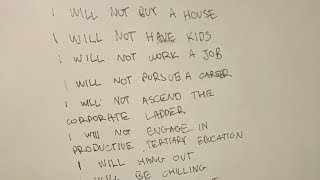 I WILL NOT BUY A HOUSE
I WILL NOT HAVE KIDS
I WILL NOT WORK A JOB
I WILL NOT PURSUE A CAREER
I WILL NOT ASCEND THE
CORPORATE LADDER
I WILL NOT ENGAGE IN
PRODUCTIVE TERTIARY EDUCATION
I WILL HANG OUT
I WILL BE CHILLING